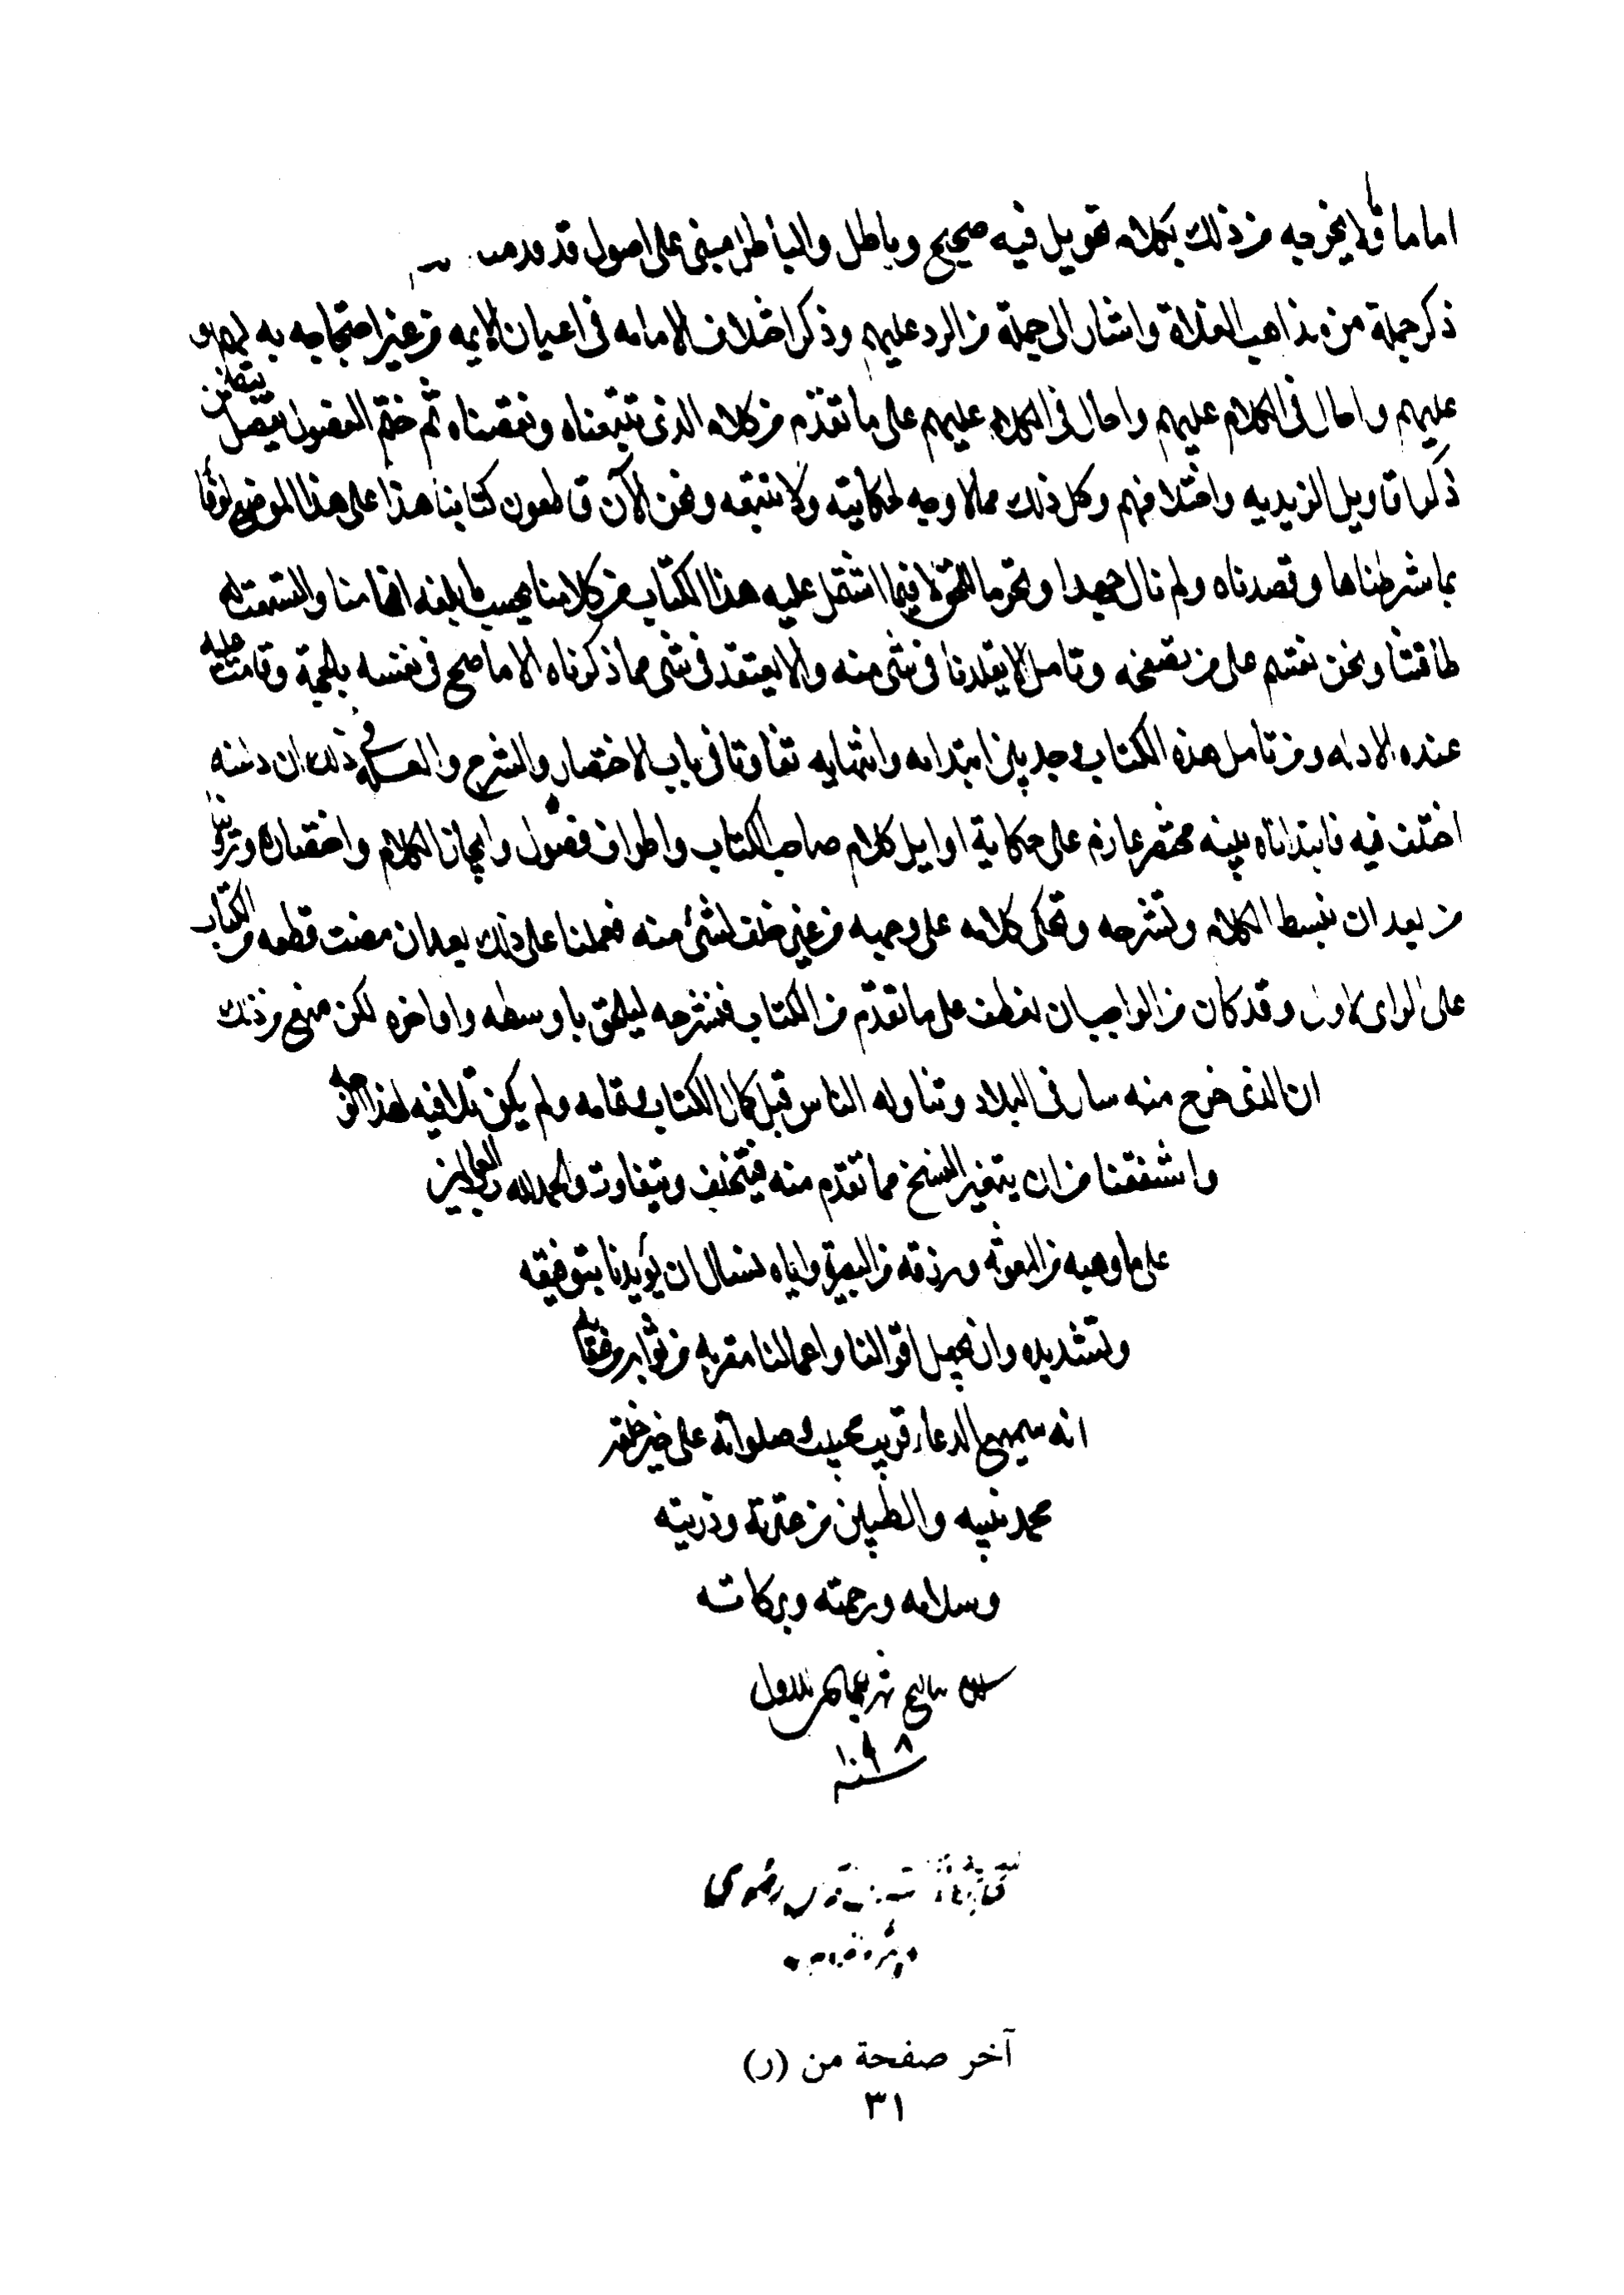 اماما ولا يخرجه من ذلك بكلام تحويل فيه صحيح وباطل والباطل مبنى على اصول قد
ذكر جملة من مذاهب الغلاة واشار الى جملة من الرد عليهم وذكر اختلاف الامامه فى اعيان الايمه من غير احتجاجه به
عليهم واحال فى الكلام عليهم واحال فى الكلام عليهم على ما تقدم من كلامه الذى تتبعناه ونقضناه ثم ختم الفصول بفصل يتضمن
ذكر اقاويل الزيديه واختلافهم وكل ذلك مما لا وجه لحكايته ولا نتبعه ونحن الآن قاطعون كتابنا هذا على هذا الموضع لوفائنا
بما شرطناه وقصدناه ولم نال جهدا وتحرما للحق فيما اشتمل عليه هذا الكتاب من كلامنا بحسب ما بلغه افهامنا واتسعت له
طاقتنا ونحن نقسم على من تصفحه وتامله الا يقلدنا فى شى منه والا يعتقد فى شى مما ذكرناه الا ما صح فى نفسه بالحجة وقامت عليه
عنده الادله ومن تامل هذه الكتاب وجد بين ابتدائه وانتهايه تفاوتا فى باب الاختصار والشرح والعله فى ذلك ان
اختلف فيه فابتداناه بنية مختصر عازم على حكاية اوايل كلام صاحب الكتاب واطراف فصول وايجاز الكلام واختصاره
من بعد ان نبسط الكلام ونشرحه ونحكى كلامه على وجهه من غير حذف لشى منه فعملنا على ذلك بعد ان مضت قطعه من الكتاب
على الراى الاول وقد كان من الواجب ان نعطف على ما تقدم من الكتاب فنشرحه ليلحق باوسطه واواخره لكن منع من ذلك
ان الذى خرج منه سار فى البلاد وتناوله الناس قبل كمال الكتاب وتمامه ولم يكن تلافيه لهذا الوجه
واشفقنا من ان يتغير النسخ مما تقدم منه فيختلف ويتفاوت والحمد لله رب العالمين
على ما وهبه من المعونة ورزقه من البصيرة واياه نسال ان يؤيدنا بتوفيقه
وتسديده وان يجعل اقوالنا واعمالنا مقربه من ثوابه
انه سميع الدعاء قريب مجيب وصلواته على خير خلقه
محمد نبيه والطيبين من عترته وذريته
وسلامه ورحمته وبركاته
رضوى
آخر صفحة من (ر)
٣١